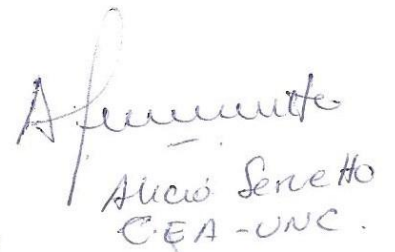 Alicia Servetto
C.E.A - UNC.